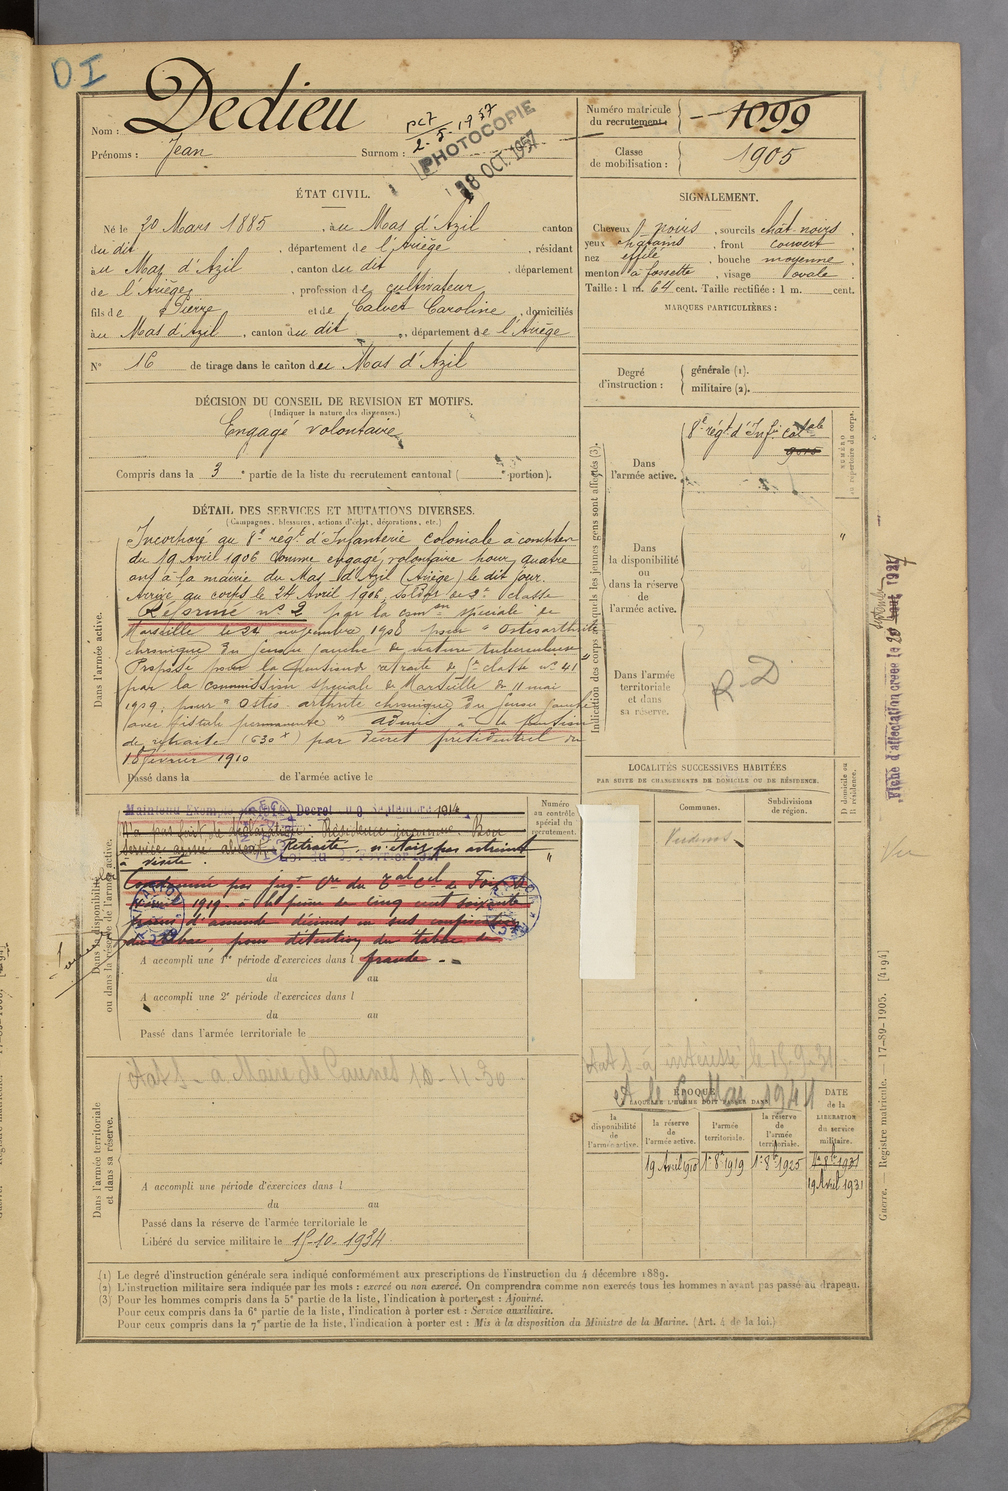 DI
Nom : Dedieu
Prénoms : Jean Surnom :
pc7 2-5-1957
PHOTOCOPIE
18 OCT. 1957
Numéro matricule du recrutement : 1099
Classe de mobilisation : 1905
ÉTAT CIVIL.
Né le 20 Mars 1885, au Mas d'Azil canton
du dit, département de l'Ariège, résidant
au Mas d'Azil, canton du dit, département
de l'Ariège, profession de cultivateur
fils de Pierre et de Calvet Caroline, domiciliés
au Mas d'Azil, canton du dit, département de l'Ariège
N° 16 de tirage dans le canton du Mas d'Azil
SIGNALEMENT.
Cheveux noirs, sourcils chat. noirs,
yeux chatains, front couvert,
nez effilé, bouche moyenne,
menton à fossette, visage ovale.
Taille : 1 m. 64 cent. Taille rectifiée : 1 m. cent.
MARQUES PARTICULIÈRES :
Degré d'instruction : générale (1).
militaire (2).
DÉCISION DU CONSEIL DE REVISION ET MOTIFS.
(Indiquer la nature des dispenses.)
Engagé volontaire
Compris dans la 3e partie de la liste du recrutement cantonal ( portion).
DÉTAIL DES SERVICES ET MUTATIONS DIVERSES.
(Campagnes, blessures, actions d'éclat, décorations, etc.)
Dans l'armée active.
Incorporé au 8e régt d'Infanterie coloniale à compter
du 19 Avril 1906 comme engagé volontaire pour quatre
ans à la mairie du Mas d'Azil (Ariège) le dit jour.
Arrivé au corps le 24 Avril 1906, soldat de 2e classe
Réformé n° 2 par la comon spéciale de
Marseille le 24 novembre 1908 pour "Ostéoarthrite
chronique du genou gauche de nature tuberculeuse"
Proposé pour la pension de retraite de classe n° 41
par la commission spéciale de Marseille du 11 mai
1909, pour "Ostéo-arthrite chronique du genou gauche
(avec fistule permanente" admis à la pension
de retraite (630 x) par décret présidentiel du
18 février 1910
Passé dans la de l'armée active le
Indication des corps auxquels les jeunes gens sont affectés (3).
Dans l'armée active. 8e régt d'Infie colale
Dans la disponibilité ou dans la réserve de l'armée active.
Dans l'armée territoriale et dans sa réserve. R-D
NUMÉRO au répertoire du corps.
Fiche d'affectation créée le 20 septembre 1927
LOCALITÉS SUCCESSIVES HABITÉES
PAR SUITE DE CHANGEMENTS DE DOMICILE OU DE RÉSIDENCE.
Communes. Subdivisions de région. D domicile ou R résidence.
Vu
Dans la disponibilité ou dans la réserve de l'armée active.
Numéro au contrôle spécial du recrutement.
Maintenu Décret du 9 Septembre 1914
N'a pas fait de déclaration. Résidence inconnue. Bon
service armé Retraité n'étais pas astreint
à visite.
Condamné par jugt du Tal Cel de Foix
1919 à la peine de cinq cent soixante
francs d'amende
pour détention de tabac de
fraude
A accompli une 1re période d'exercices dans l
du au
A accompli une 2e période d'exercices dans l
du au
Passé dans l'armée territoriale le
Dans l'armée territoriale et dans sa réserve.
à Maire de Caunes 10-11-30
à intéressé le 15-9-31
A le 6 Mai 1941
A accompli une période d'exercices dans l
du au
Passé dans la réserve de l'armée territoriale le
Libéré du service militaire le 15-10-1934
ÉPOQUE À LAQUELLE L'HOMME DOIT PASSER DANS
la disponibilité de l'armée active. la réserve de l'armée active. l'armée territoriale. la réserve de l'armée territoriale. DATE de la LIBÉRATION du service militaire.
19 Avril 1910 1er 8bre 1919 1er 8bre 1925 1er 8bre 1931
19 Avril 1931
(1) Le degré d'instruction générale sera indiqué conformément aux prescriptions de l'instruction du 4 décembre 1889.
(2) L'instruction militaire sera indiquée par les mots : exercé ou non exercé. On comprendra comme non exercés tous les hommes n'ayant pas passé au drapeau.
(3) Pour les hommes compris dans la 5e partie de la liste, l'indication à porter est : Ajourné.
Pour ceux compris dans la 6e partie de la liste, l'indication à porter est : Service auxiliaire.
Pour ceux compris dans la 7e partie de la liste, l'indication à porter est : Mis à la disposition du Ministre de la Marine. (Art. 4 de la loi.)
Guerre. — Registre matricule. — 17-89-1905. [4194]